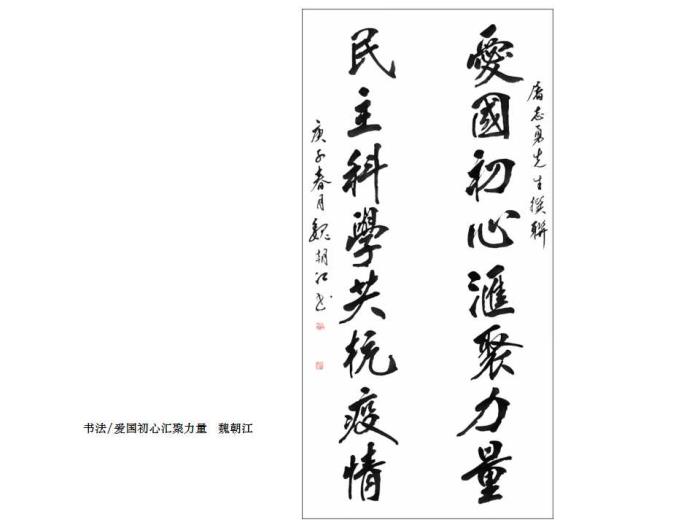 愛國初心滙聚力量
屠志勇先生撰聯
民主科學共抗疫情
庚子春月魏朝江书
书法/爱国初心汇聚力量　魏朝江